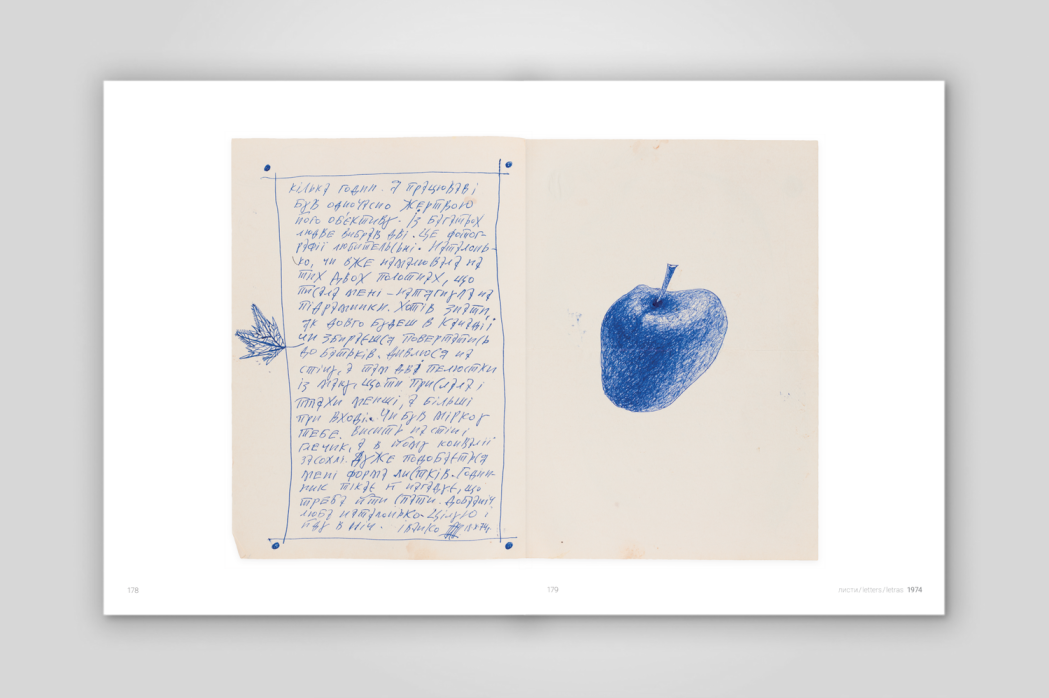 кілька годин. Я працював і
був одночасно жертвою
його об'єктиву. Із багатьох
людве вибрав дві. Це фотог-
рафії любительські. Наталонь-
ко, чи вже намалювала на
тих двох полотнах, що
писала мені – натягнула на
підрамники. Хотів знати,
як довго будеш в Канаді і
чи збираєшся повертатись
до батьків. Дивлюся на
стіну, а там дві пелюстки
із маку, що ти прислала і
птахи менші, а більші
при вході. Чи був Мірко у
тебе. Висить на стіні
глечик, а в ньому конвалії
засохлі. Дуже подобається
мені форма листків. Годин-
ник тікає й нагадує, що
треба йти спати. Добраніч
люба Наталонько. Цілую і
йду в ніч. Івайко
178
179
листи/letters/letras 1974